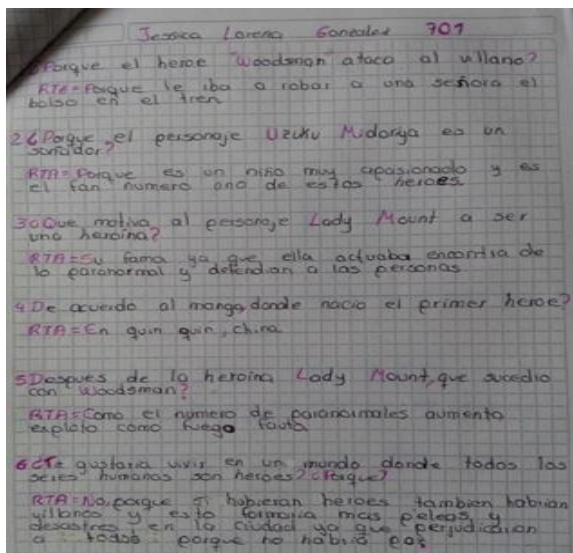 Jessica Lorena Gonzalez 701
¿Porque el heroe "Woodsman" ataca al villano?
RTA= Porque le iba a robar a una señora el
bolso en el tren
2¿Porque el personaje Uzuku Midorya es un
soñador?
RTA= Porque es un niño muy apasionado y es
el fan numero uno de estos heroes.
3¿Que motiva al personaje Lady Mount a ser
una heroina?
RTA= Su fama ya que ella actuaba encontra de
lo paranormal y defendian a las personas
4 De acuerdo al manga, donde nacio el primer heroe?
RTA= En quin quin, china
5 Despues de la heroina Lady Mount, que sucedio
con Woodsman?
RTA= Como el numero de paranormales aumento
exploto como fuego
6 ¿Te gustaria vivir en un mundo donde todos los
seres humanos son heroes? ¿Porque?
RTA= No, porque si hubieran heroes tambien habrian
villanos y esto formaria mas peleas y
desastres en la ciudad ya que perjudicarian
a todos porque no habria paz